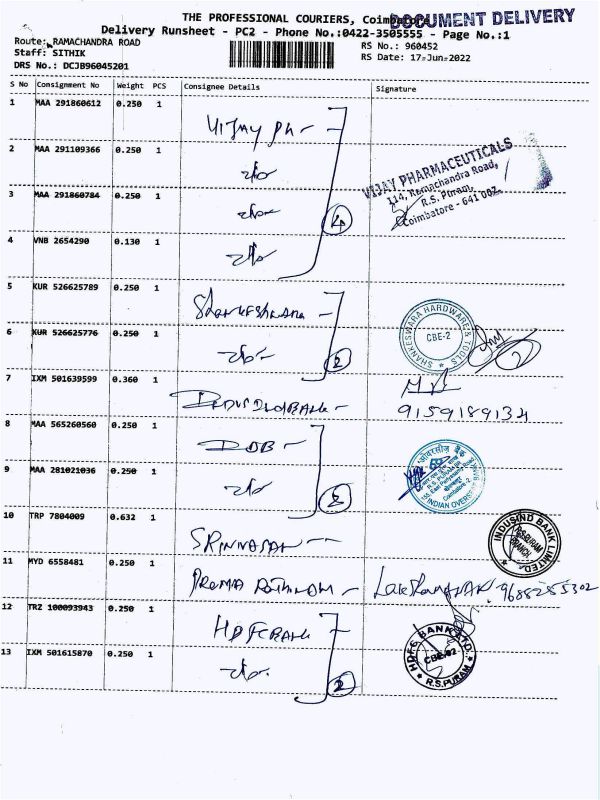 THE PROFESSIONAL COURIERS, Coimbatore
DOCUMENT DELIVERY
Delivery Runsheet - PC2 - Phone No.:0422-3505555 - Page No.:1
Route: RAMACHANDRA ROAD
RS No.: 960452
Staff: SITHIK
RS Date: 17-Jun-2022
DRS No.: DCJB96045201
S No Consignment No Weight PCS Consignee Details Signature
1 MAA 291860612 0.250 1 Vijay Ph -
2 MAA 291109366 0.250 1
VIJAY PHARMACEUTICALS
114, Ramachandra Road,
R.S. Puram,
Coimbatore - 641 002.
3 MAA 291860784 0.250 1
4
4 VNB 2654290 0.130 1
5 KUR 526625789 0.250 1
SHANKESWARA HARDWARE & TOOLS
CBE-2
6 KUR 526625776 0.250 1
2
7 IXM 501639599 0.360 1
9159189134
8 MAA 565260560 0.250 1 IOB -
INDIAN OVERSEAS BANK
9 MAA 281021036 0.250 1
10 TRP 7804009 0.632 1 SRINIVASAN --
INDUSIND BANK LIMITED
R.S.PURAM
BRANCH
11 MYD 6558481 0.250 1 9688255302
12 TRZ 100093943 0.250 1 HDFC BANK
HDFC BANK LTD.
CBE-02
R.S.PURAM
13 IXM 501615870 0.250 1
2